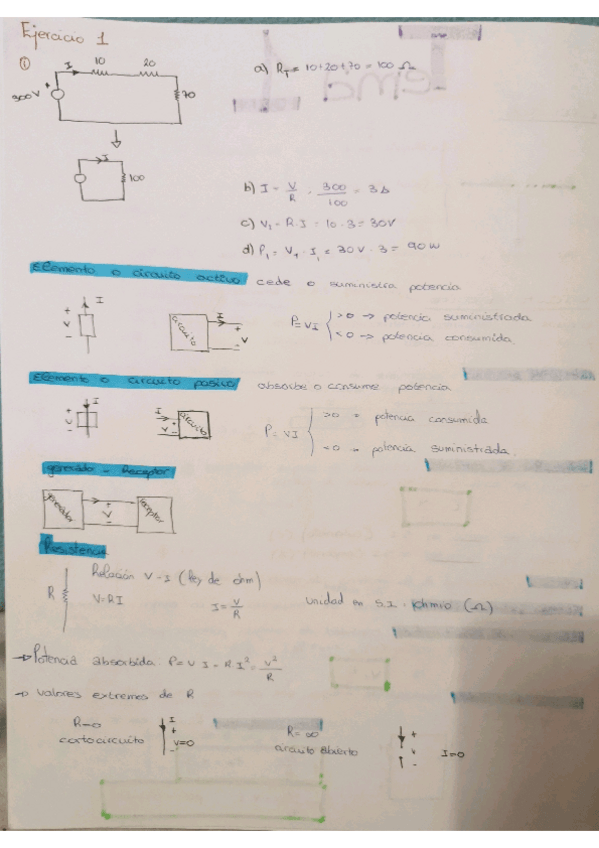 Ejercicio 1
①
I 10 20
300 V + 70
I
100
a) R_T = 10+20+70 = 100 Ω
b) I = V/R = 300/100 = 3A
c) V₁ = R·I = 10·3 = 30V
d) P₁ = V₁·I₁ = 30V·3 = 90W
Elemento o circuito activo cede o suministra potencia
I + V -
circuito I + V -
P=VI { >0 -> potencia suministrada
<0 -> potencia consumida
Elemento o circuito pasivo absorbe o consume potencia
+ V - I
I + V - circuito
P=VI { >0 = potencia consumida
<0 = potencia suministrada.
generador - Receptor
generador + V - receptor
Resistencia
Relación V-I (Ley de ohm)
R V=RI I=V/R unidad en S.I. ohmio (Ω)
-> Potencia absorbida. P=V I = R.I² = V²/R
-> Valores extremos de R
R=0 I + V=0 -
cortocircuito
R=∞ + V - I=0
circuito abierto
Tema 1